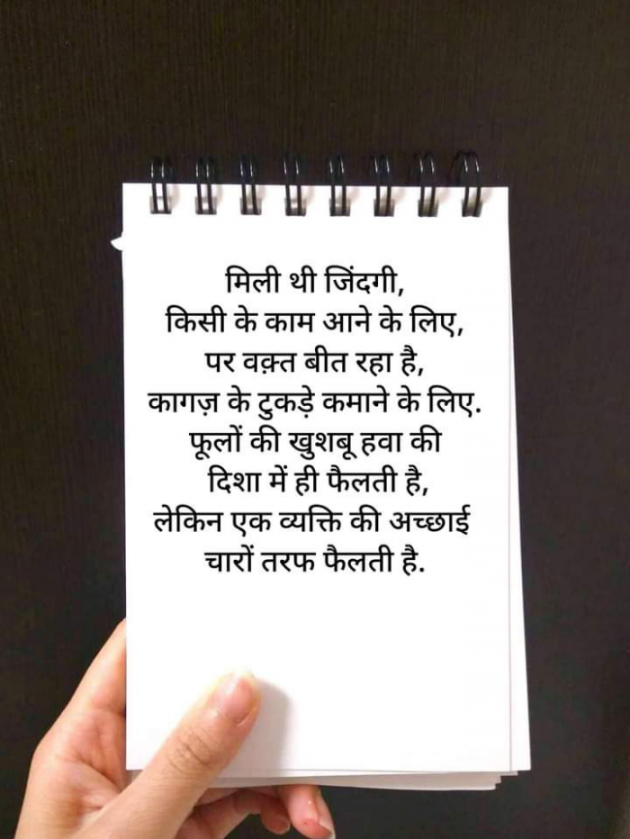 मिली थी जिंदगी,
किसी के काम आने के लिए,
पर वक़्त बीत रहा है,
कागज़ के टुकड़े कमाने के लिए.
फूलों की खुशबू हवा की
दिशा में ही फैलती है,
लेकिन एक व्यक्ति की अच्छाई
चारों तरफ फैलती है.